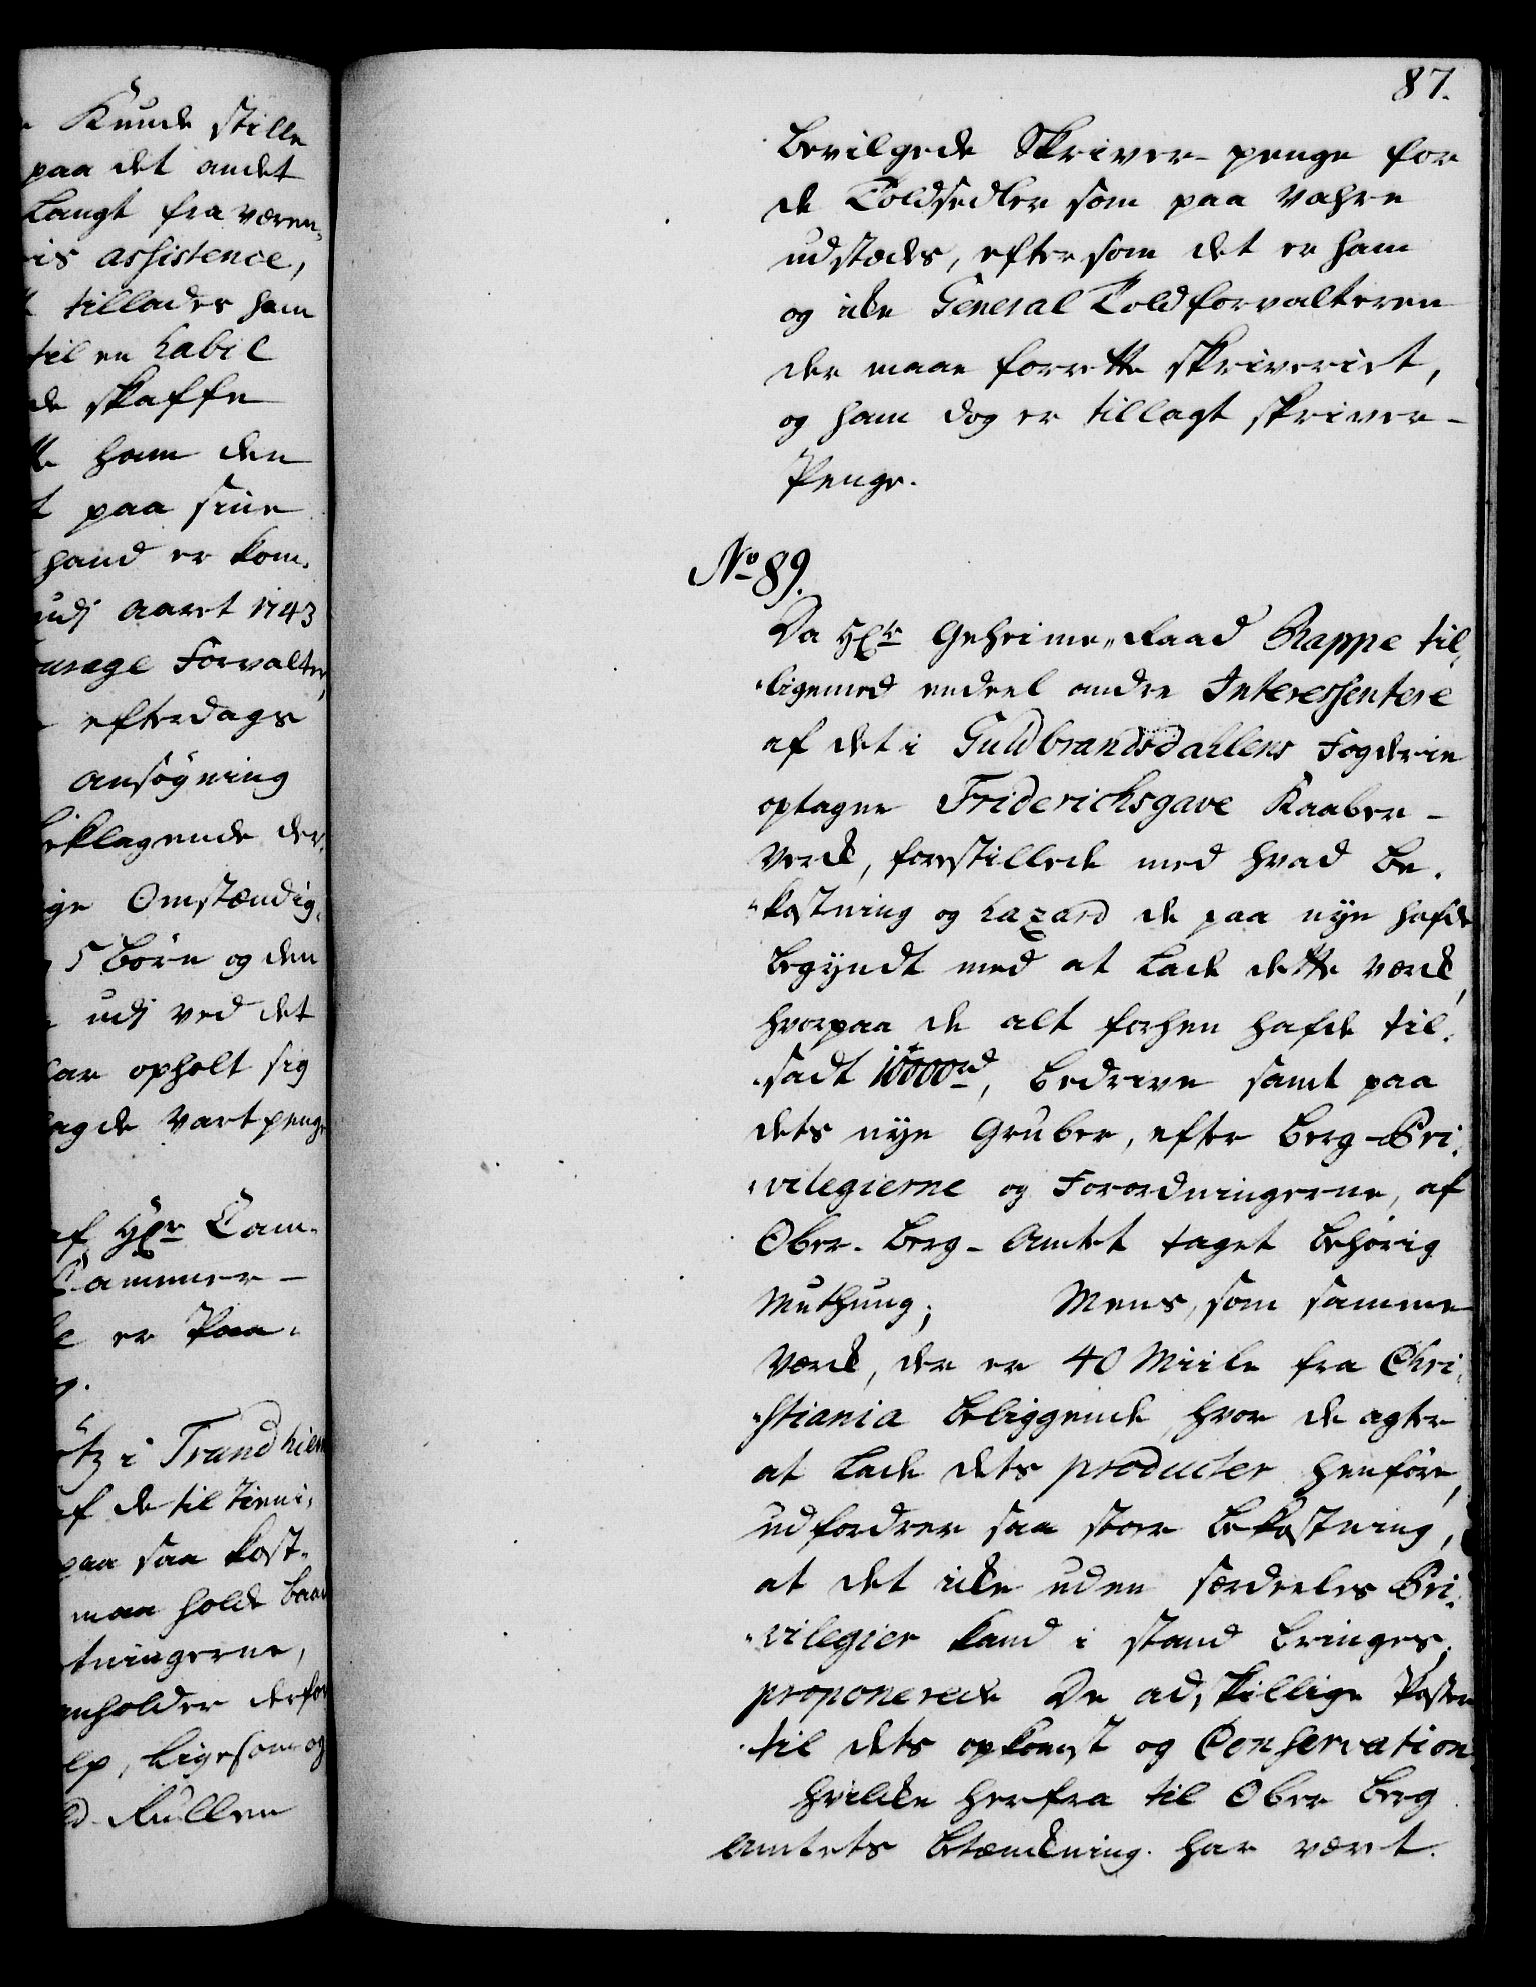 Kunde stille
paa det andet
Langt fra væren,
is assistence,
tillades ham
til en habil
de skaffe
ham den
t paa sine
hand er kom.
udj aaret 1743
urage Forvalter,
efterdags
ansøgning
beklagende der.
ige Omstændig,
5 børn og den
udj ved det
opholt sig
agde Vartpenge
af Hr Cam.
Cammer-
er Paa.
tz i Trundhiem
af de til tieni,
paa saa kost-
maa holde baade
tningerne,
nholder derfor
lp, ligesom og
Rullen
87.
bevilgede Skriver-penge for
de Toldsedler som paa Vahre
udstædes, eftersom det er ham
og icke General Toldforvalteren
der maae forrette skriveriet,
og ham dog er tillagt skriver-
Penge.
No 89.
Da Hr Geheime-Raad Rappe til,
ligemed endeel andre Interessentere
af det i Guldbrandsdahlens Fogderie
optagne Friderichsgave Kaaber-
Verck, forestillede med hvad be.
kostning og hazard de paa nye hafde
begyndt med at lade dette Værck,
hvorpaa de alt forhen hafde til.
sadt 10000 rd, bedrive samt paa
dets nye Gruber, efter Berg-Pri.
vilegierne og Forordningerne, af
Ober-Berg-Amtet taget behørig
Muthung; Mens, som samme
Værck, der er 40 Miile fra Chri,
stiania beliggende, hvor de agter
at lade dets producter henføre,
udfordrer saa stor bekostning,
at det icke uden særdeeles Pri.
vilegier kand i stand bringes,
proponerede De adskillige Poster
til dets opkomst og Conservation
hvilcke herfra til Ober Berg
Amtets betænckning har vært.